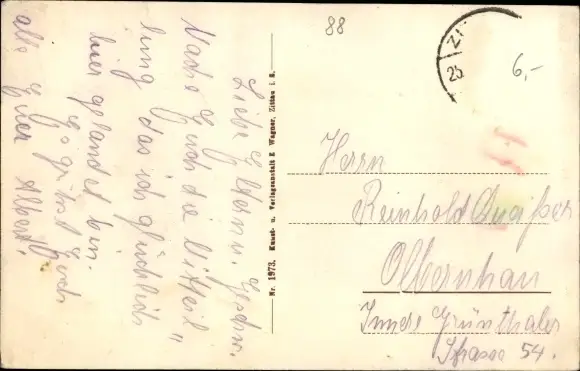 88
6,-
ZI
25
Liebe Eltern u. Geschw.
Mache Euch die Mitteil"
lung das ich glücklich
hier gelandet bin.
Es grüsst Euch
alle Euer Albert.
Nr. 1973. Kunst- u. Verlagsanstalt E. Wagner, Zittau i. S.
Herrn
Reinhold Quaißer
Olbernhau
Innere Grünthaler
Strasse 54.